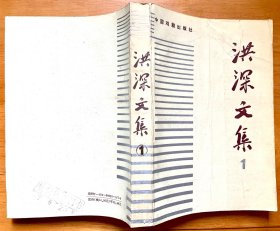 中国戏剧出版社
洪深文集
1
洪深文集
①